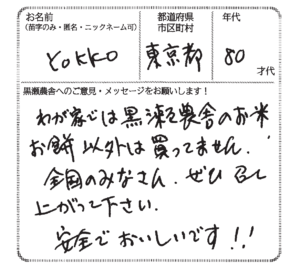 お名前
(苗字のみ・匿名・ニックネーム可)
都道府県
市区町村
年代
yokko
東京都
80
才代
黒瀬農舎へのご意見・メッセージをお願いします!
わが家では黒瀬農舎のお米
お餅以外は買ってません.
全国のみなさん.ぜひ召し
上がって下さい.
安全でおいしいです!!